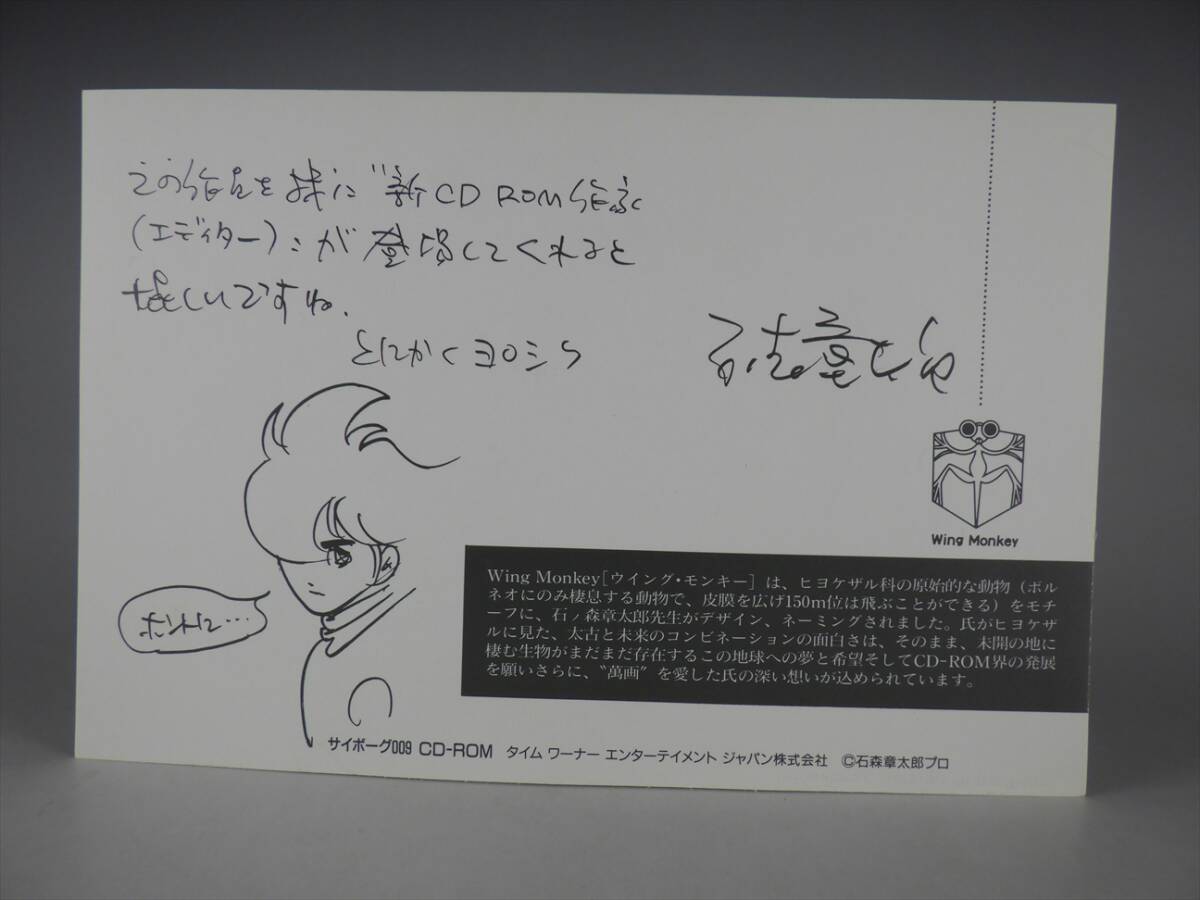 この作品を機に〝新CD ROM作家
(エディター)〟が登場してくれると
嬉しいですね.
とにかくヨロシク
石ノ森章太郎
ホントに…
Wing Monkey
Wing Monkey[ウイング・モンキー]は、ヒヨケザル科の原始的な動物(ボル
ネオにのみ棲息する動物で、皮膜を広げ150m位は飛ぶことができる)をモチ
ーフに、石ノ森章太郎先生がデザイン、ネーミングされました。氏がヒヨケザ
ルに見た、太古と未来のコンビネーションの面白さは、そのまま、未開の地に
棲む生物がまだまだ存在するこの地球への夢と希望そしてCD-ROM界の発展
を願いさらに、〝萬画〟を愛した氏の深い想いが込められています。
サイボーグ009 CD-ROM タイム ワーナー エンターテイメント ジャパン株式会社 ©石森章太郎プロ